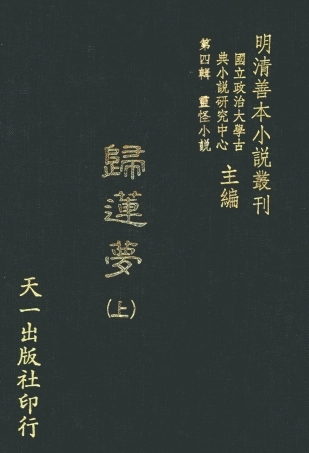 明清善本小說叢刊
國立政治大學古
典小說研究中心
主編
第四輯 靈怪小說
歸蓮夢
(上)
天一出版社印行